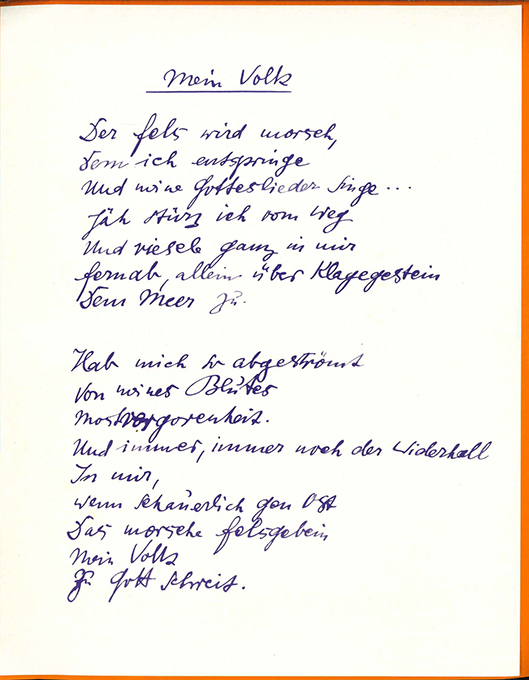 Mein Volk
Der Fels wird morsch,
Dem ich entspringe
Und meine Gotteslieder singe...
Jäh stürz ich vom Weg
Und riesele ganz in mir
Fernab, allein über Klagegestein
Dem Meer zu.
Hab mich so abgeströmt
Von meines Blutes
Mostvergorenheit.
Und immer, immer noch der Widerhall
In mir,
Wenn schauerlich gen Ost
Das morsche Felsgebein
Mein Volk
Zu Gott schreit.